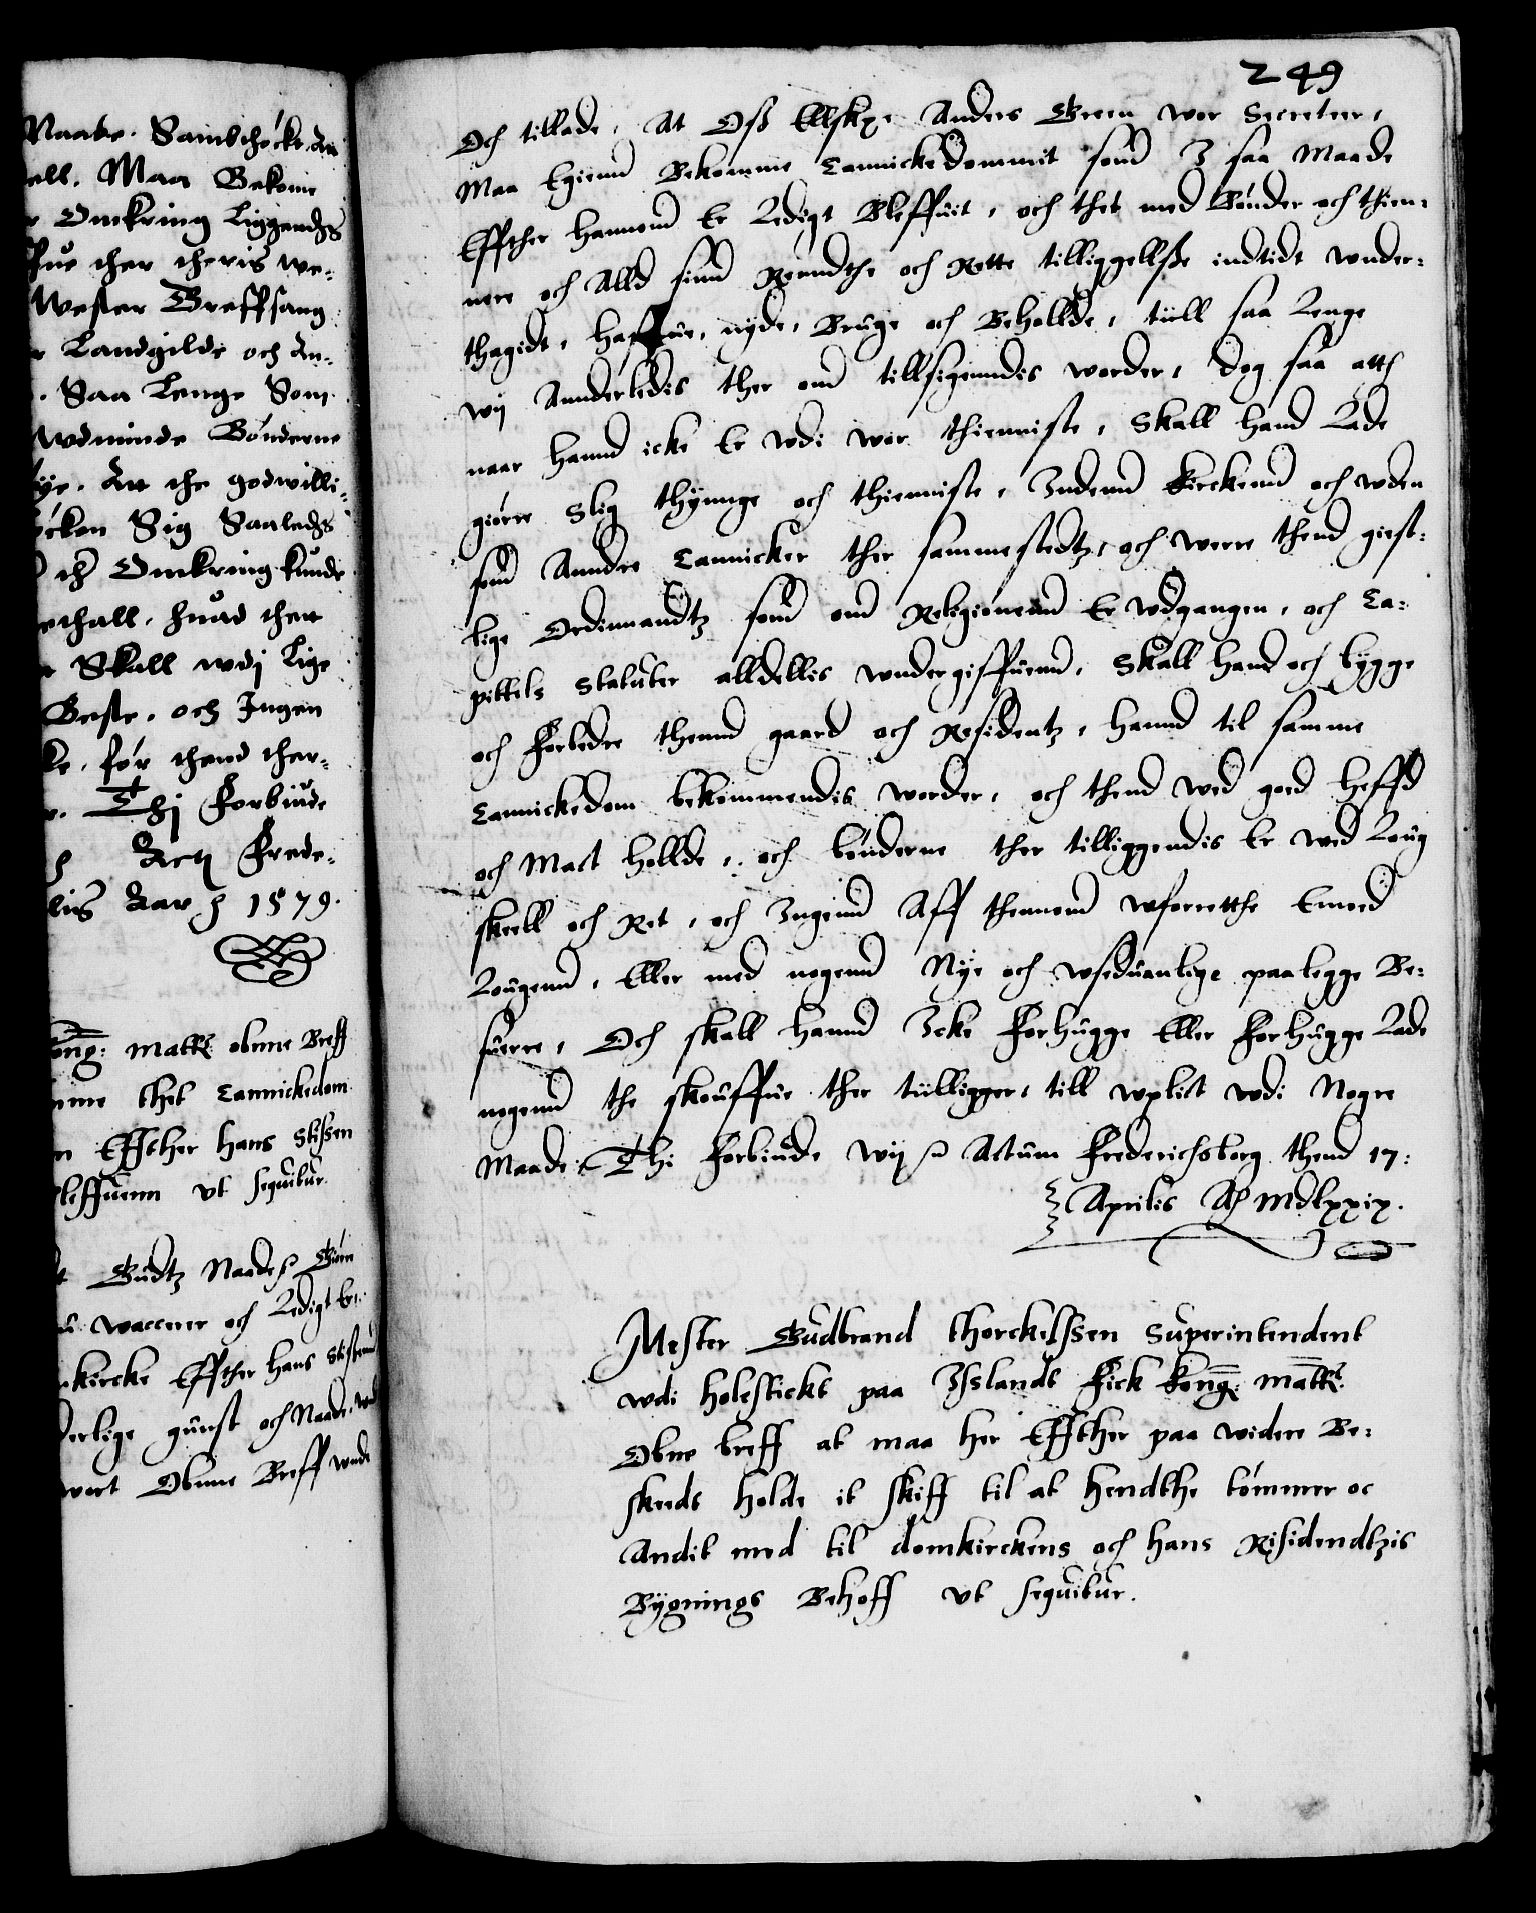 Naade. Sambthøcke An
all. Maa Bekome
Omkring Liggendhs
ffue ther theris we-
Wester Greffsang
Landgilde och An-
. Saa Lenge Som
wdminde Bønderne
øye. At the godwilli-
øcken Sig Saaledhs
Omkring kunde
huad thett
Skall wdj Lige
Beste. och Ingen
ke, for thend ther-
Thj Forbiude
Actj Frede-
lis Aar 1579.
Kong: Matts obnne Breff
thet Cannickedom
n Effther Hans Stissen
bleffuenn vt sequitur.
t Gudtz Naade Giøre
wacerer och Ledigt er
kircke Effther Hans Stissenn
derlige gunst och Naade,
wort Obnne Breff wnde
249
Och tillade, At Oß Elskæ. Anders Green wor Secreteer,
Maa Egienn Bekomme Cannickedommit som I saa Maade
Effther hannom Er Ledigt Bleffuit, och thet med Bønder och thien-
nere och Alld sinn Renndthe och Rette tilliggellße indtidt wnder-
thagidt, haffue, nyde, Bruge och Behollde, till saa Lenge
wij Annderledis ther om tillsigenndis worder, dog saa atth
naar hannd icke Er wdi wor thienniste, Skall hand Lade
giørre Slig thynnge och thienniste, Indenn Kirckenn och wden
som Anndre Cannicker ther sammestedtz, och were thend giest-
lige Ordinnandtz som om Religionenn Er wdgangen, och Ca-
pittels Statuter alldellis wndergiffuenn, Skall hand och bygge
och Forbedre thennd gaard och Residentz, hannd til samme
Cannickedom bekommendis worder, och thend wed goed heffd
och Mact hollde, och bønderne ther tilliggendis Er wed Loug
skeell och Ret, och Ingenn Aff thennom wforretthe Emod
Lougenn, Eller med nogenn Nye och wseduanlige paalegge Be-
suerre, Och skall hannd Icke Forhugge Eller Forhugge Lade
nogenn the skouffue ther tilligger, till wplict wdi Nogre
Maade. Thi Forbiude wij Actum Frederichsborg thend 17:
Aprilis Aar Mdlxxix.
Mester Gudbrand thorckelssen Superintendent
wdi Holesticks paa Isslands Fick Kong: Matts
Obne breff at maa her Effther paa widere Be-
skeds holde it skiff til at hendthe tømmer oc
Andit med til domkirckens och hans Risidendtzis
Bygnings Behoff vt sequitur.